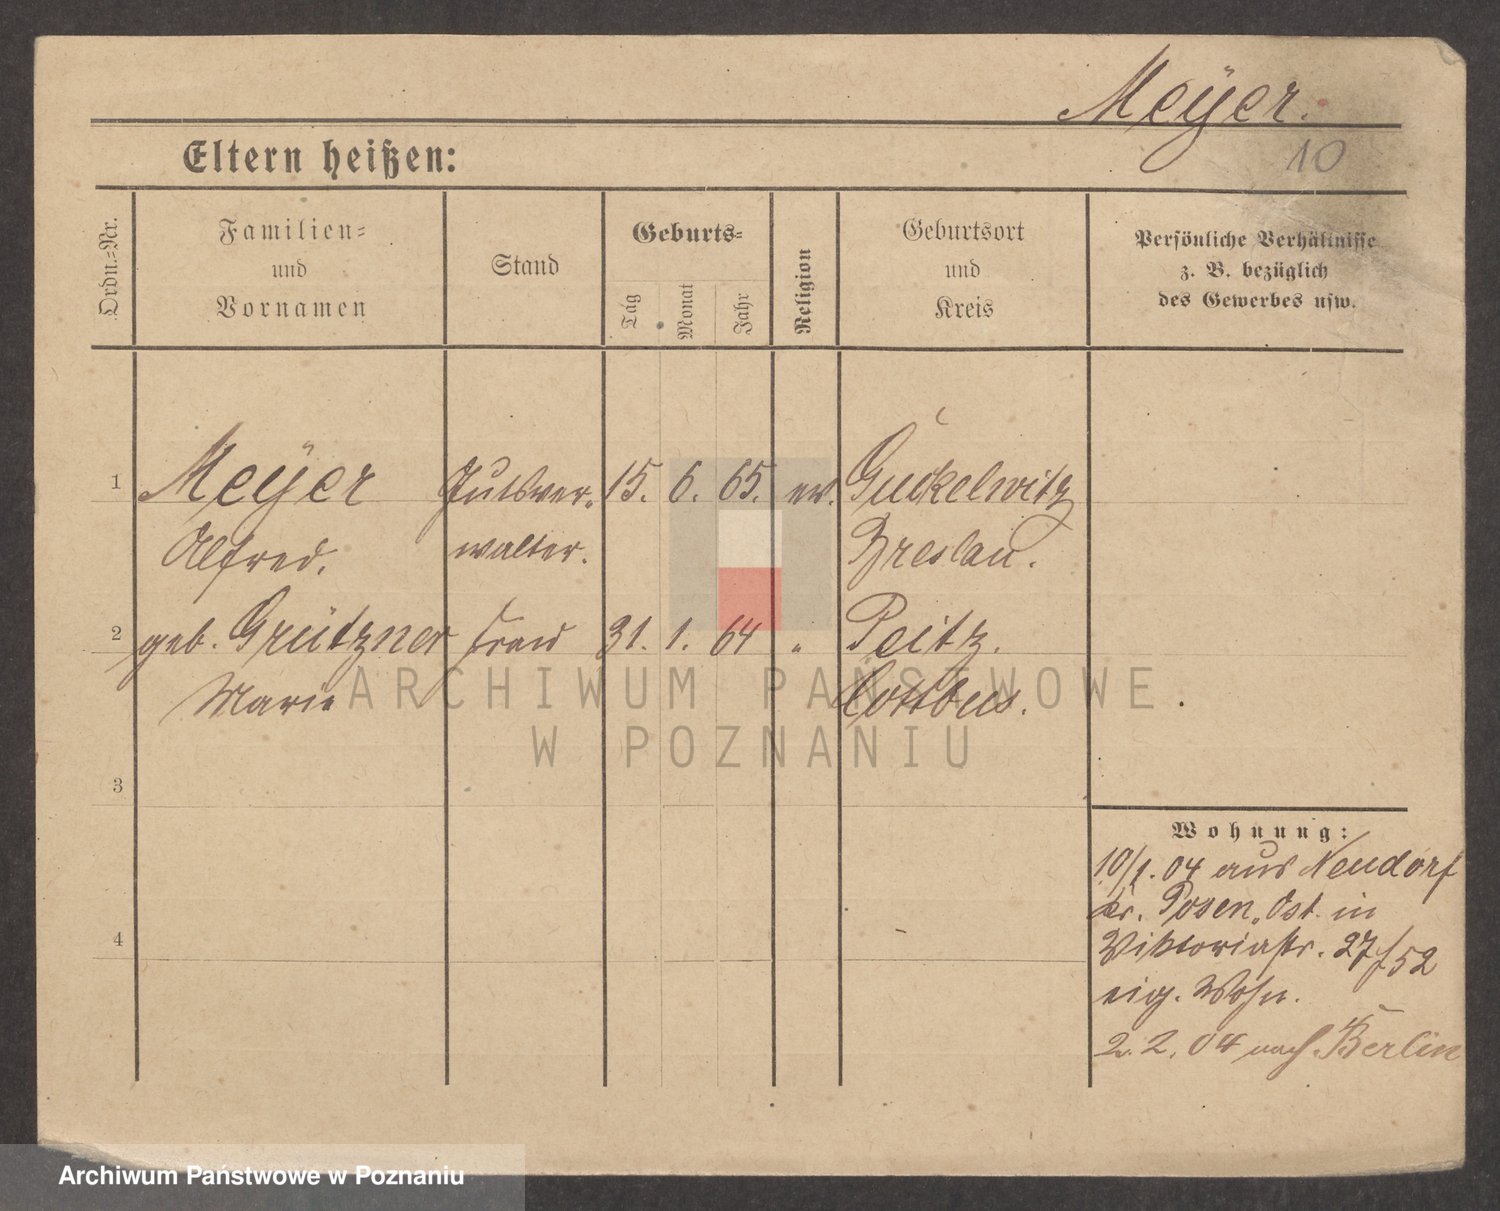 Meÿer.
10
Eltern heißen:
Ordn.-Nr.
Familien-
und
Vornamen
Stand
Geburts-
Tag
Monat
Jahr
Religion
Geburtsort
und
Kreis
Persönliche Verhältnisse
z. B. bezüglich
des Gewerbes usw.
1 Meÿer Gutsver- 15. 6. 65. ev. Guckelwitz
Alfred. walter. Breslau.
2 geb. Grützner Frau 31. 1. 64 " Peitz.
Marie Cottbus.
ARCHIWUM PAŃSTWOWE
W POZNANIU
3
4
Wohnung:
10/1. 04 aus Neudorf
Kr. Posen Ost. in
Viktoriastr. 27/52
eig. Wohn.
2. 2. 04 nach Berlin
Archiwum Państwowe w Poznaniu